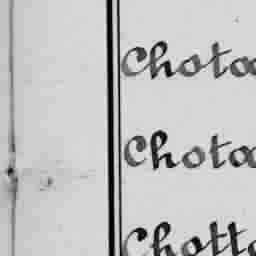 Chota
Chota
Chott